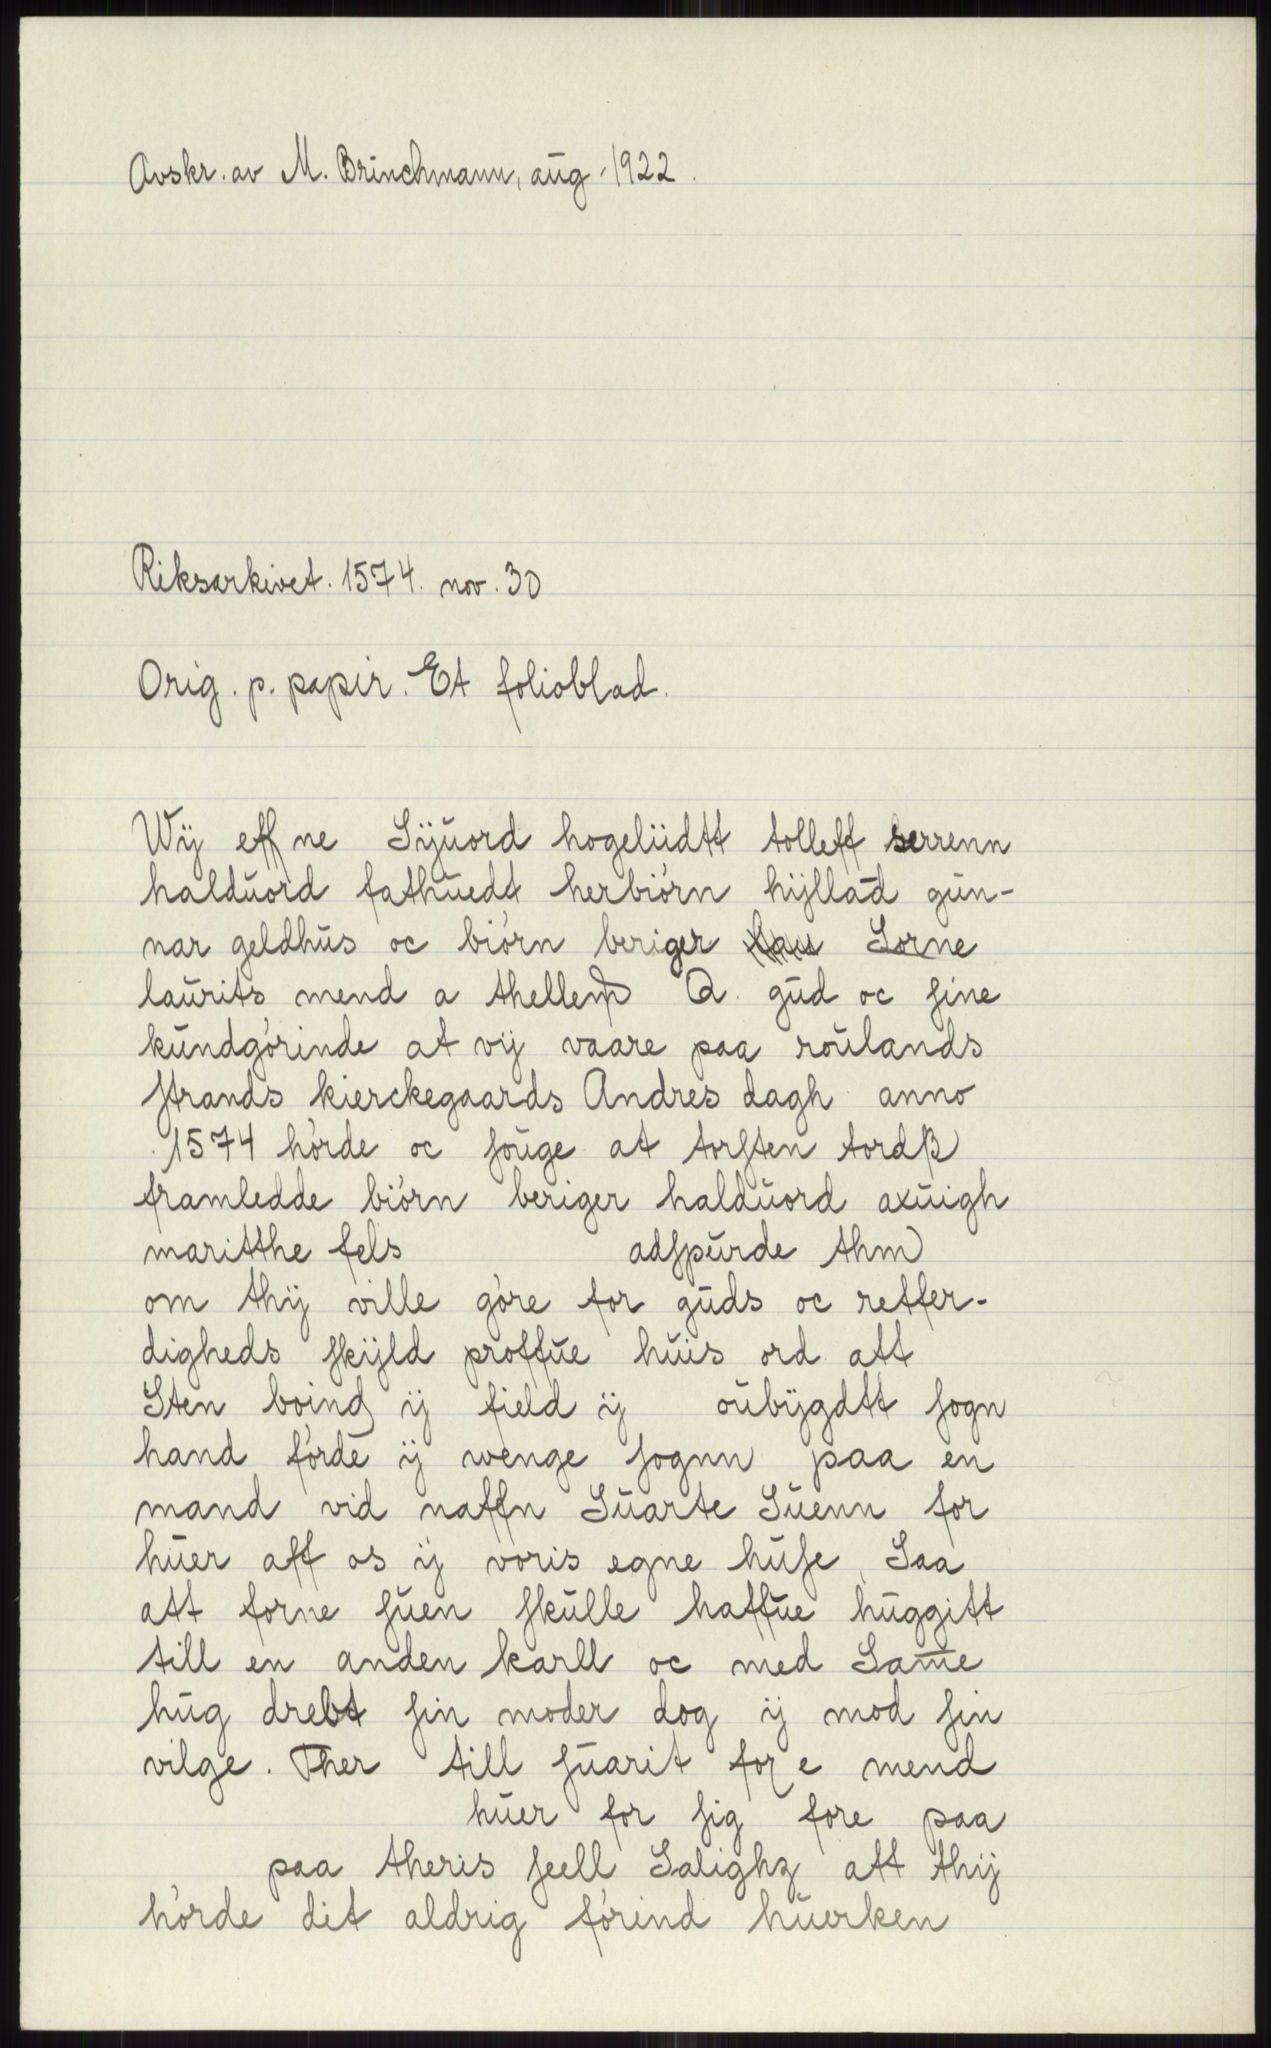 Avskr. av M. Brinchmann, aug. 1922.
Riksarkivet. 1574. nov. 30
Orig. p. papir. Et folioblad.
Wij effne Sijuord hogeliidtt tolleff serrenn
halduord fathuedt herbiórn hijllad gun-
nar geldhus oc biórn beriger Sorne
laurits mend a thellem Q. gud oc sine
kundgórinde at vij vaare paa roulands
strands kierckegaards Andres dagh anno
1574 hórde oc souge at torsten tordß
framledde biórn beriger halduord axuigh
maritthe fels adspurde thm
om thij ville góre for guds oc retfer-
digheds skijld proffue huis ord att
Sten boind ij field ij oubijgdtt sogn
hand fórde ij wenge sognn paa en
mand vid naffn Suarte Suenn for
huer aff os ij voris egne huse Saa
att forne suen skulle haffue huggitt
till en anden karll oc med Same
hug drebt sin moder dog ij mod sin
vilge. Ther till suarit for e mend
huer for sig fore paa
paa theris seell Salighz att thij
hórde dit aldrig fórind huerken